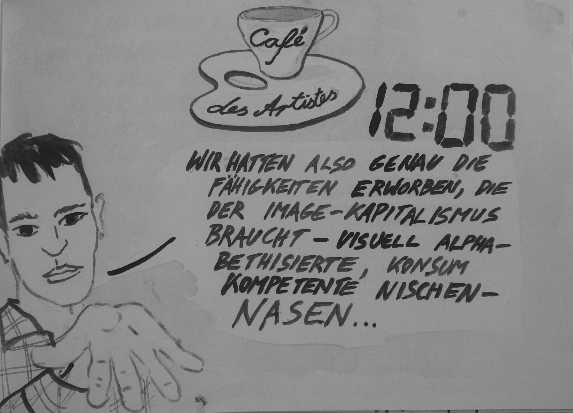 Café
des Artistes
12:00
WIR HATTEN ALSO GENAU DIE
FÄHIGKEITEN ERWORBEN, DIE
DER IMAGE-KAPITALISMUS
BRAUCHT – VISUELL ALPHA-
BETHISIERTE, KONSUM
KOMPETENTE NISCHEN-
NASEN...